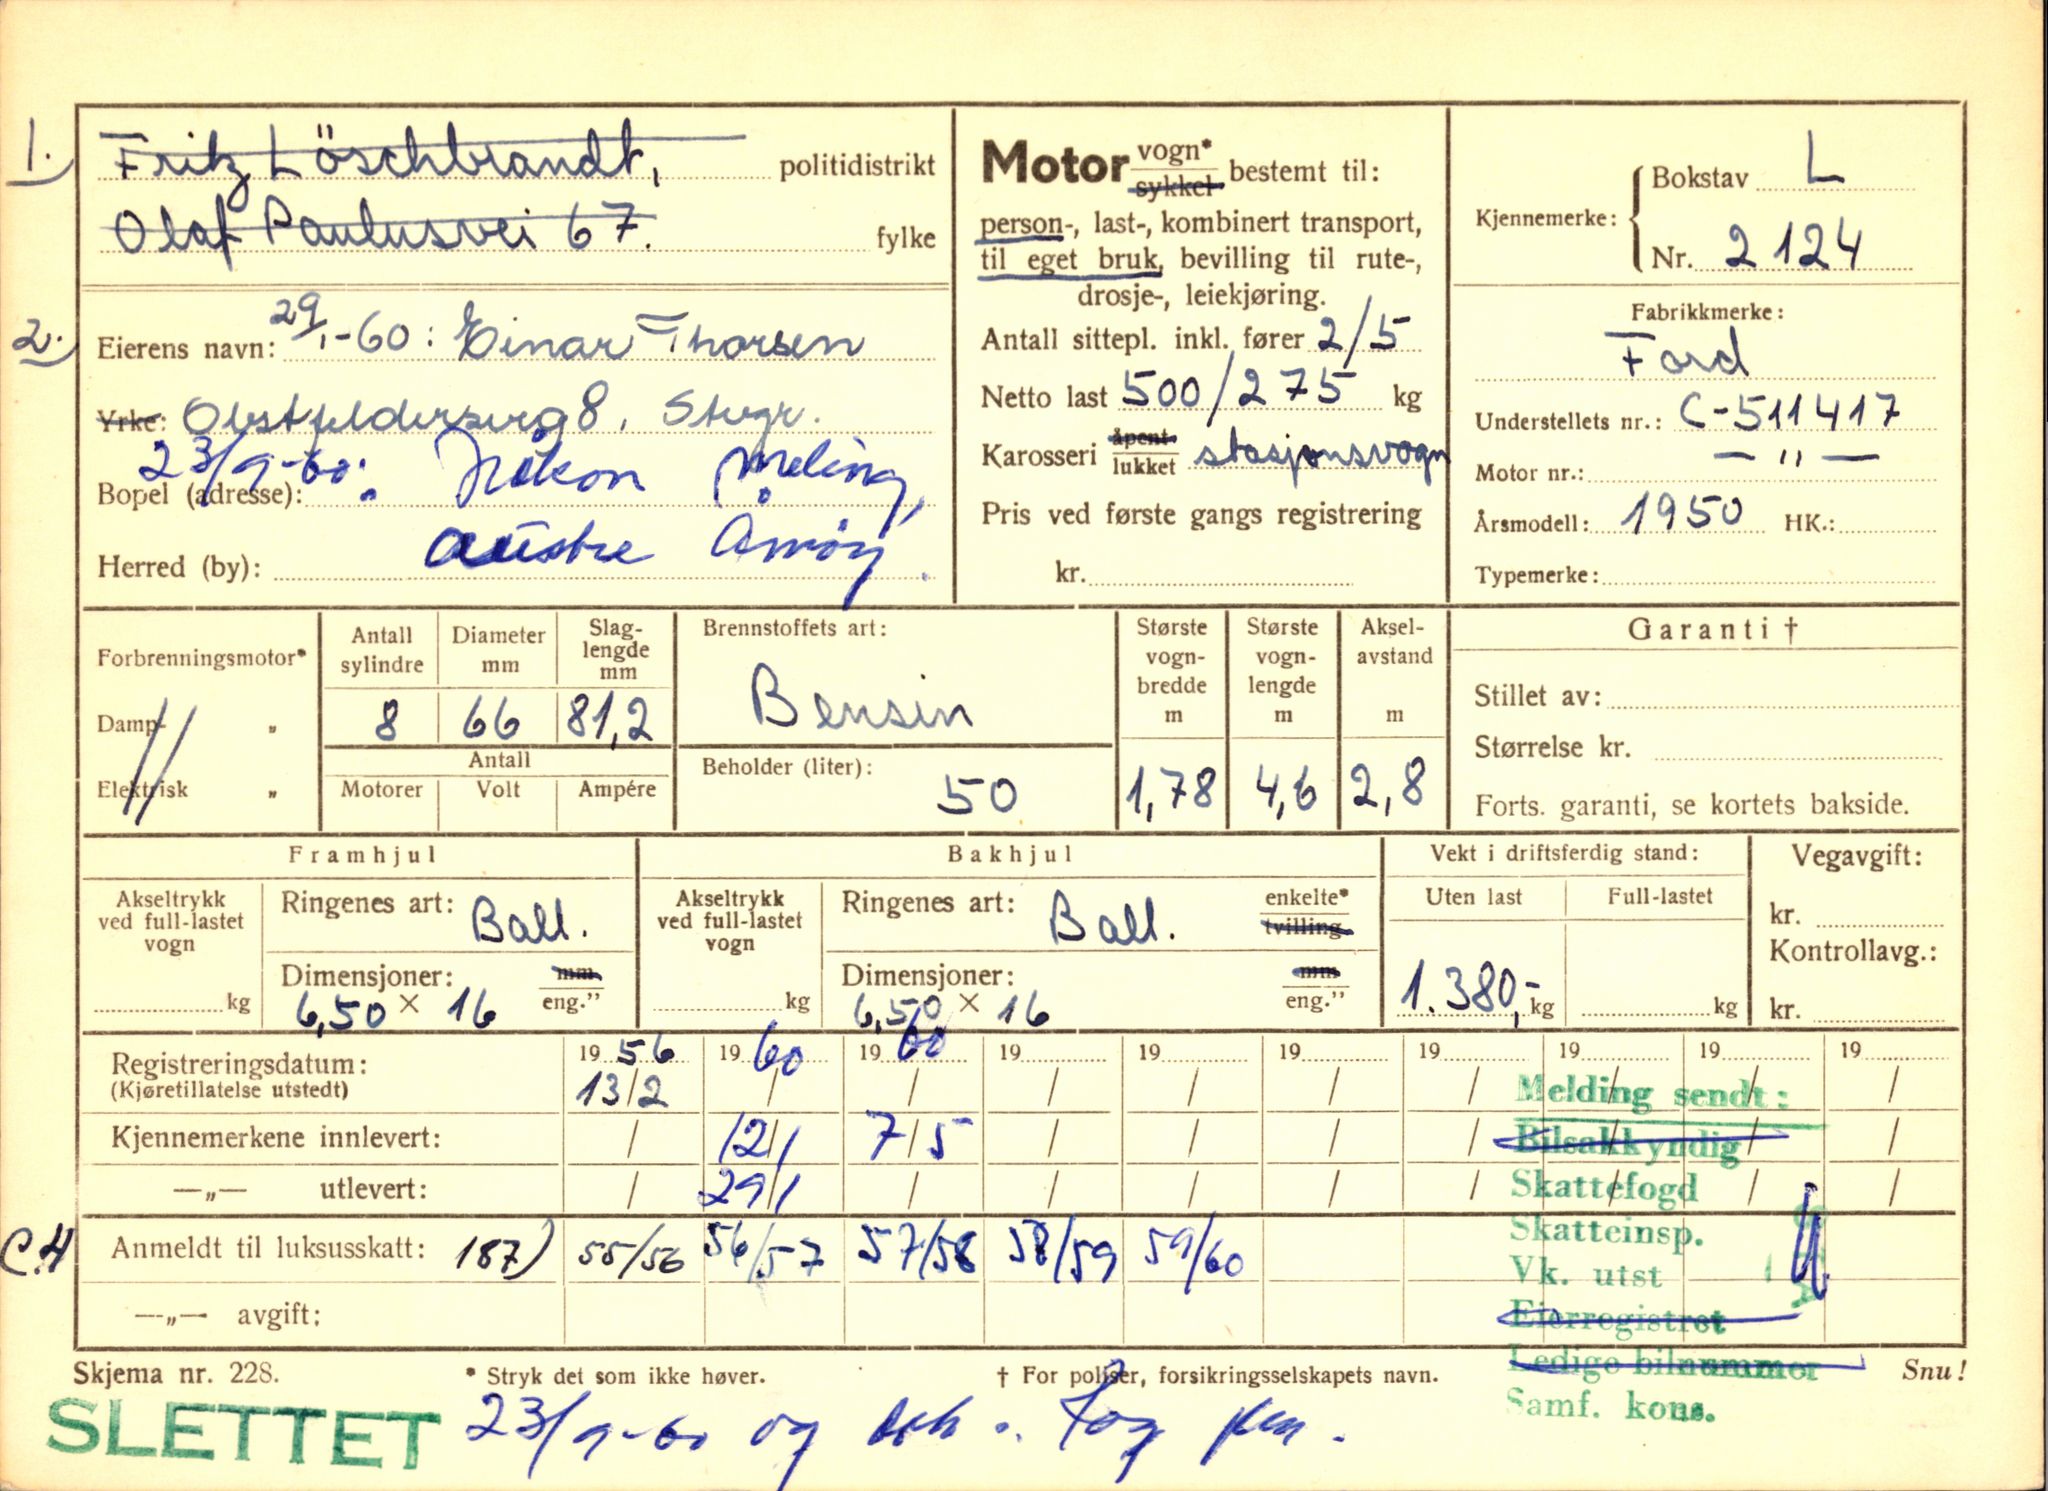 1.
Fritz Löschbrandt, politidistrikt
Olaf Paulusvei 67. fylke
2.
Eierens navn: 29/1-60: Einar Thorsen
Yrke: Obstfeldersvg 8, Svgr.
23/9-60: Håkon Meling,
Bopel (adresse):
Austre Åmøy
Herred (by):
Motor vogn*
sykkel bestemt til:
person-, last-, kombinert transport,
til eget bruk, bevilling til rute-,
drosje-, leiekjøring.
Antall sittepl. inkl. fører 2/5
Netto last 500/275 kg
Karosseri åpent
lukket stasjonsvogn
Pris ved første gangs registrering
kr.
Kjennemerke: Bokstav L
Nr. 2124
Fabrikkmerke:
Ford
Understellets nr.: C-511417
Motor nr.: — " —
Årsmodell: 1950 HK.:
Typemerke:
Forbrenningsmotor*
Damp- „
Elektrisk „
Antall sylindre
8
Diameter mm
66
Slag-
lengde
mm
81,2
Antall
Motorer Volt Ampére
Brennstoffets art:
Bensin
Beholder (liter):
50
Største
vogn-
bredde
m
1,78
Største
vogn-
lengde
m
4,6
Aksel-
avstand
m
2,8
Garanti †
Stillet av:
Størrelse kr.
Forts. garanti, se kortets bakside.
Framhjul
Akseltrykk
ved full-lastet
vogn
kg
Ringenes art: Ball.
Dimensjoner: mm
6,50 × 16 eng."
Bakhjul
Akseltrykk
ved full-lastet
vogn
kg
Ringenes art: Ball. enkelte*
tvilling
Dimensjoner: mm
6,50 × 16 eng."
Vekt i driftsferdig stand:
Uten last Full-lastet
1.380,- kg kg
Vegavgift:
kr.
Kontrollavg.:
kr.
Registreringsdatum: 19 56 19 60 19 60 19 19 19 19 19 19 19
(Kjøretillatelse utstedt) 13/2 / / / / / / / / /
Kjennemerkene innlevert: / 12/1 7/5 / / / / / / /
—„— utlevert: / 29/1 / / / / / / / /
C.H Anmeldt til luksusskatt: 187) 55/56 56/57 57/58 58/59 59/60
—„— avgift:
Melding sendt:
Bilsakkyndig
Skattefogd
Skatteinsp.
Vk. utst
Eierregistret
Ledige bilnummer
Samf. kons.
Skjema nr. 228. * Stryk det som ikke høver. † For poliser, forsikringsselskapets navn. Snu!
SLETTET 23/9-60 og